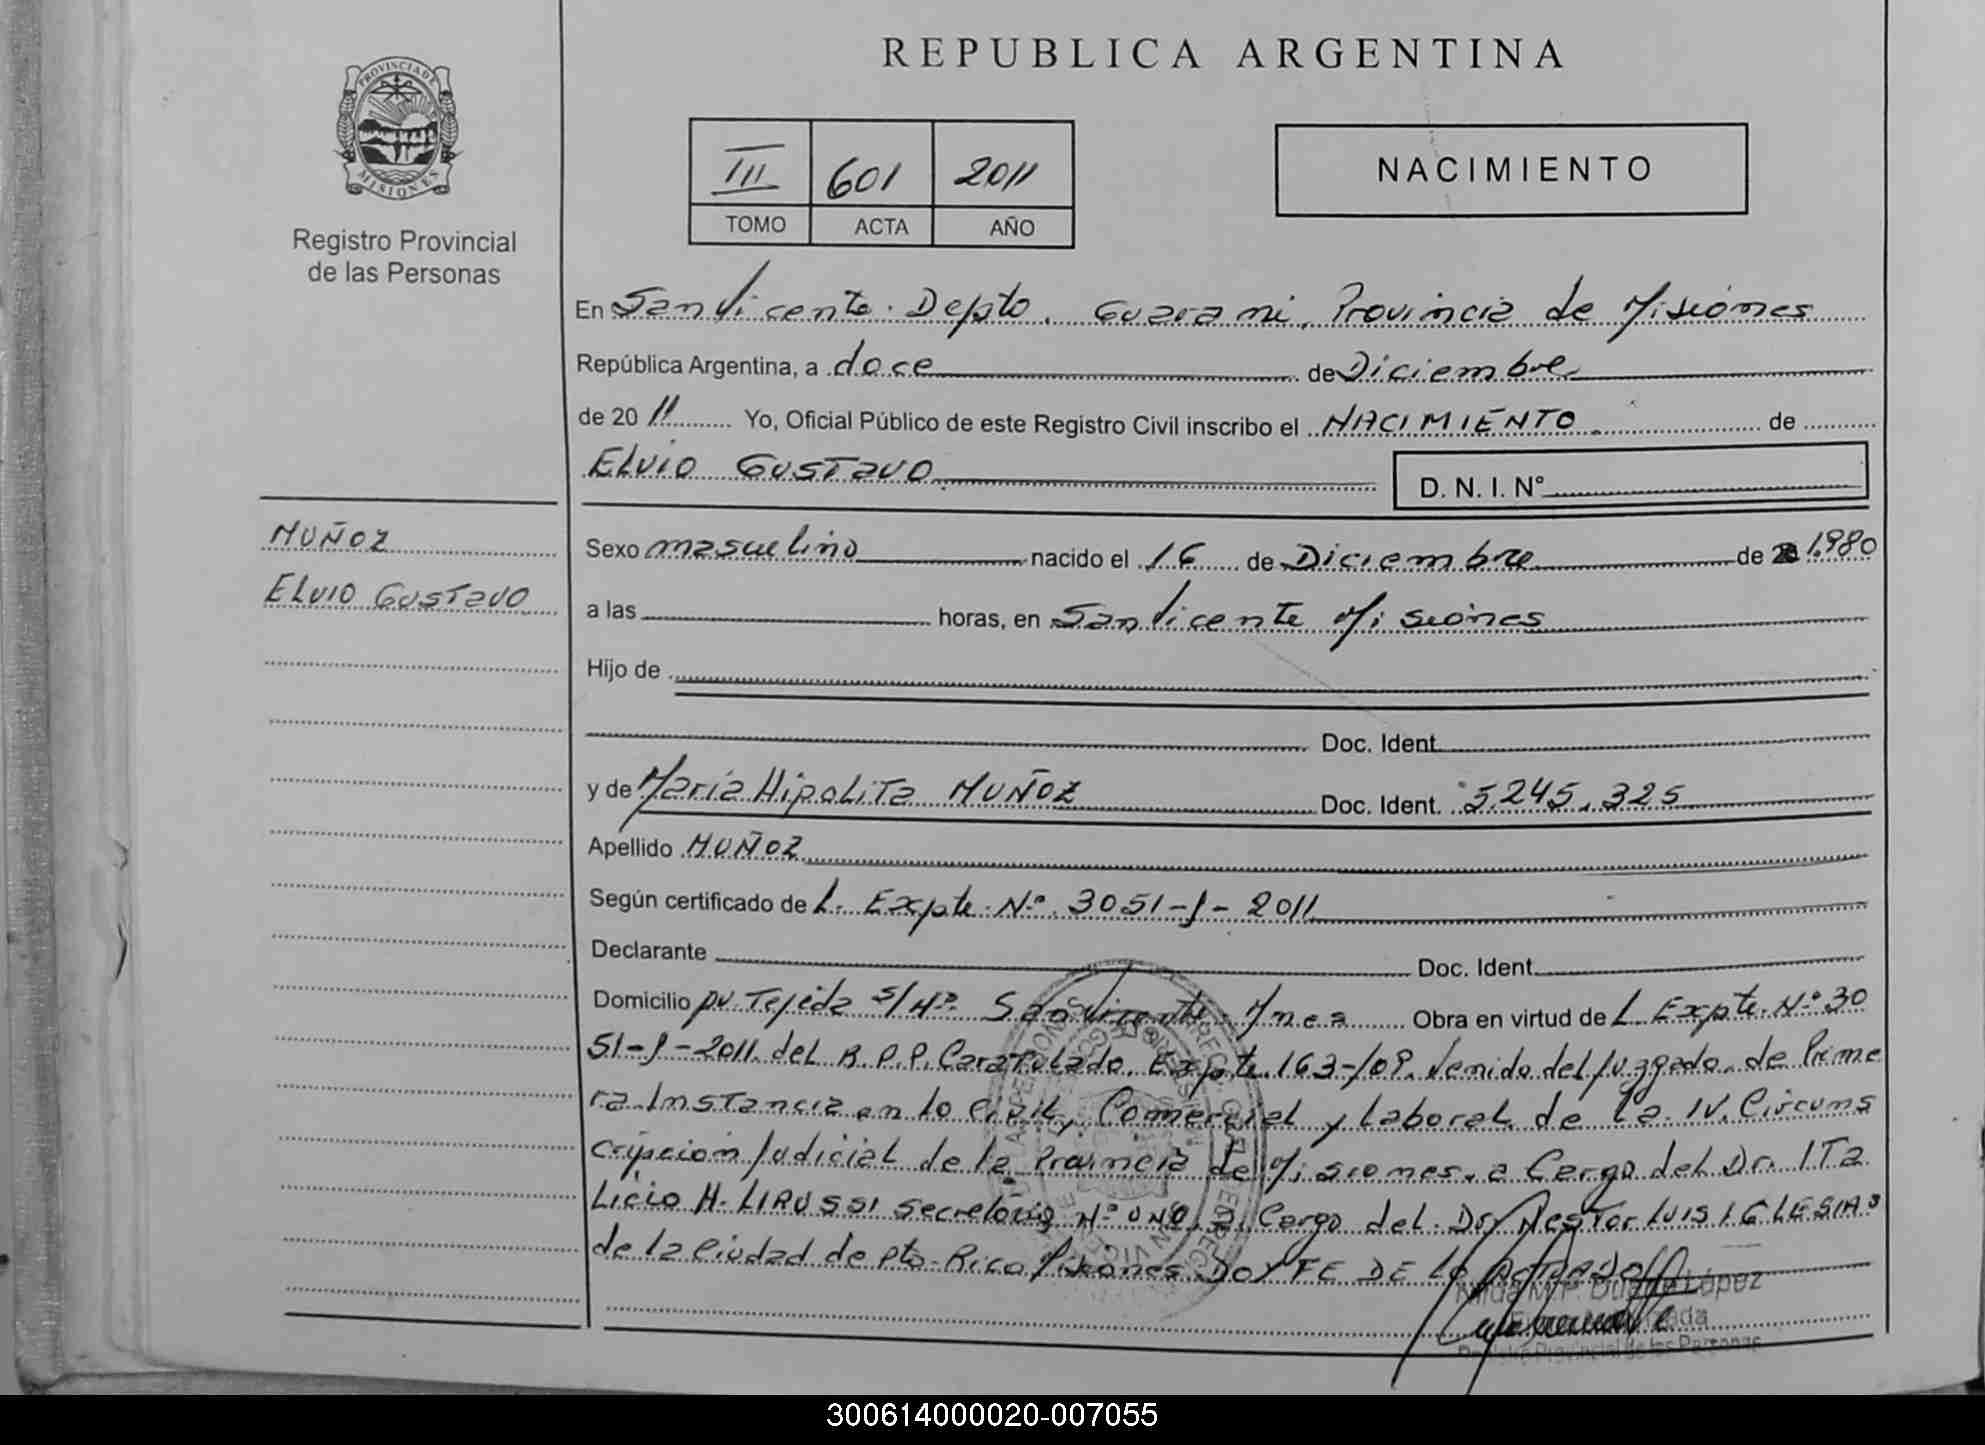 REPUBLICA ARGENTINA
PROVINCIA DE
MISIONES
Registro Provincial
de las Personas
III 601 2011
TOMO ACTA AÑO
NACIMIENTO
En San Vicente. Depto. Guarani, Provincia de Misiones
República Argentina, a doce de Diciembre
de 20 11 Yo, Oficial Público de este Registro Civil inscribo el NACIMIENTO. de
ELVIO GUSTAVO
D. N. I. N°
MUÑOZ
ELVIO GUSTAVO
Sexo masculino nacido el 16 de Diciembre de 1.980
a las horas, en San Vicente Misiones
Hijo de
Doc. Ident.
y de Maria Hipolita MUÑOZ Doc. Ident. 5.245.325
Apellido MUÑOZ
Según certificado de L. Expte. Nº. 3051-J-2011
Declarante Doc. Ident.
Domicilio pv. Tejeda S/Nº. San Vicente. Mnes Obra en virtud de L Expte. Nº 30
51-J-2011. del R.P.P. Caratulado. Expte. 163-/09. venido del Juzgado. de Prime
ra Instancia en lo Civil, Comercial y Laboral. de la IV. Circuns
cripcion Judicial de la Provincia de Misiones. a Cargo del Dr. ITA
LICIO H. LIRUSSI Secretaria Nº UNO, a Cargo del. Dr. NESTOR LUIS IGLESIAS
de la Ciudad de Pto. Rico Misiones. DOY FE DE LO ACTUADO
Duarte López
Registro Provincial de las Personas
300614000020-007055